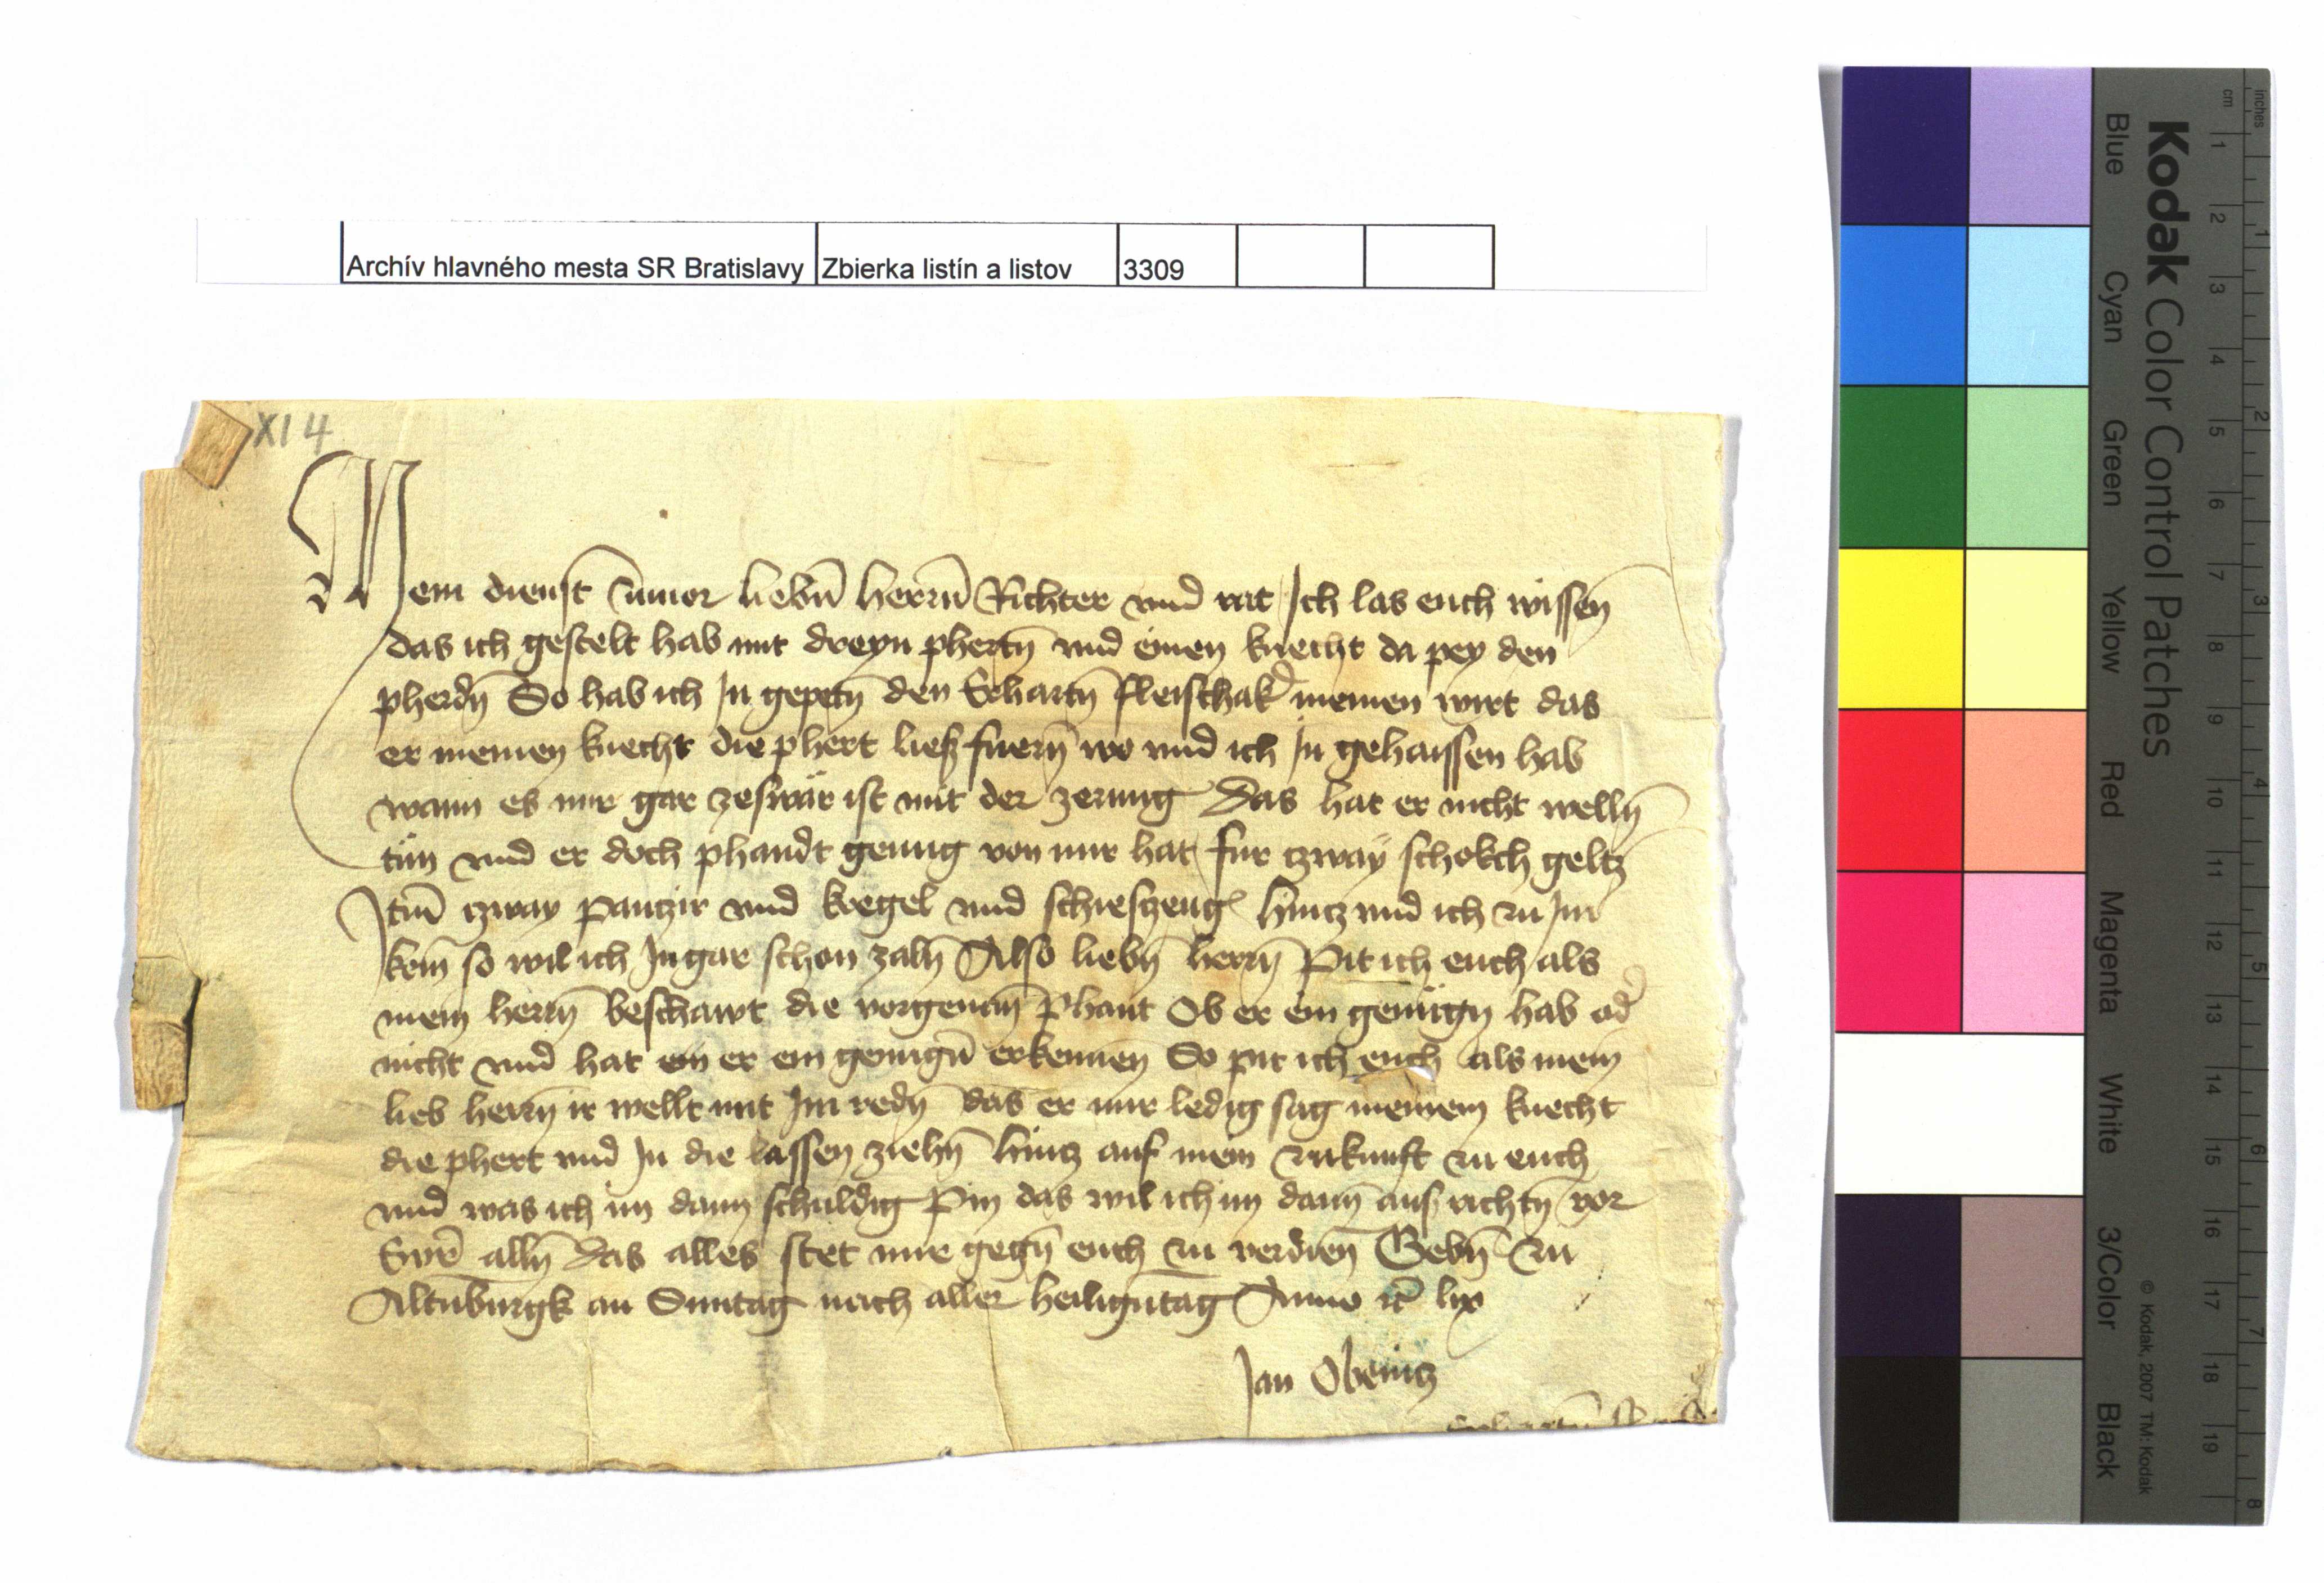 Archív hlavného mesta SR Bratislavy Zbierka listín a listov 3309
XI 4
Mein dienst liebn̄ herrn̄ Richter vnd rat Ich las euch wissen̄
das ich gestelt hab mit dreyn phertn̄ vnd einen knecht da pey den
pherdn̄ So hab ich In gepetn̄ den Erhartn̄ fleischak̄ meinen wirt das
er meinen knecht die phert liess fuern̄ wo vnd ich In gehaissen hab
wann es mir gar zeswär ist mit der zerung Das hat er nicht welln̄
tün vnd er doch phandt genug von mir hat fur zway schokch geltz
Itm̄ zway pantzir vnd kregel vnd schieszeug hintz vnd ich zu Im
kem̄ so wil ich In gar schon zaln̄ Also liebn̄ herrn̄ Pit ich euch als
mein herrn̄ beschawt die vorgenan̄ Phant Ob er ein genügn̄ hab od̄
nicht vnd hat ein er ein genugn̄ erkennen So pit ich euch als mein̄
lieb herrn̄ ir wellt mit Im redn̄ das er mir ledig sag meinem knecht
die phert vnd In die lassen ziehn̄ hintz auf mein zukunft zu euch
vnd was ich im dann schuldig Pin das wil ich im dann̄ aus richtn̄ vor
Ewr̄ alln̄ Das alles stet mir gegn̄ euch zu verdien̄ Gebn̄ zu
Altn̄burgk an Suntag nach aller heilign̄tag Anno rc̄ lix
Jan Obenitz
Kodak Color Control Patches
Blue Cyan Green Yellow Red Magenta White 3/Color Black
© Kodak, 2007 TM: Kodak
cm 1 2 3 4 5 6 7 8 9 10 11 12 13 14 15 16 17 18 19
inches 1 2 3 4 5 6 7 8